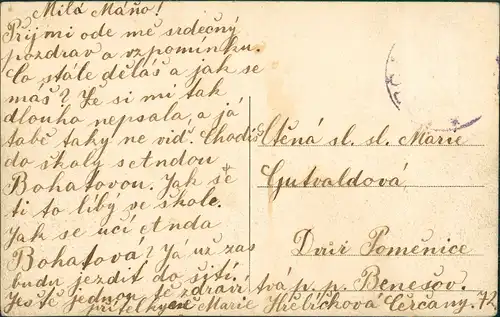 Milá Máňo!
Přijmi ode mě srdečný
pozdrav a vzpomínku.
Co stále děláš a jak se
máš? Že si mi tak
dlouho nepsala, a já
tabě taky ne viď. Chodíš
do školy s Andou
Bohatovou. Jak se
ti to líbý ve škole.
Jak se učí Anda
Bohatová? Já už zas
budu jezdit do šití.
Ještě jednou tě zdraví tvá
přítelkyně Marie Hřebíčkova Čerčany. 72
Ctěná sl. sl. Marie
Gutvaldová
Dvůr Poměnice
p. p. Benešov.